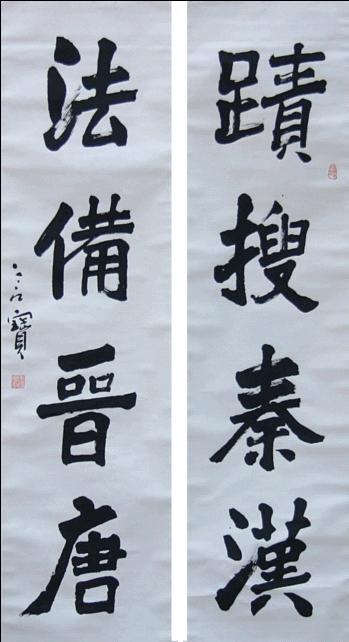 蹟搜秦漢
法備晉唐